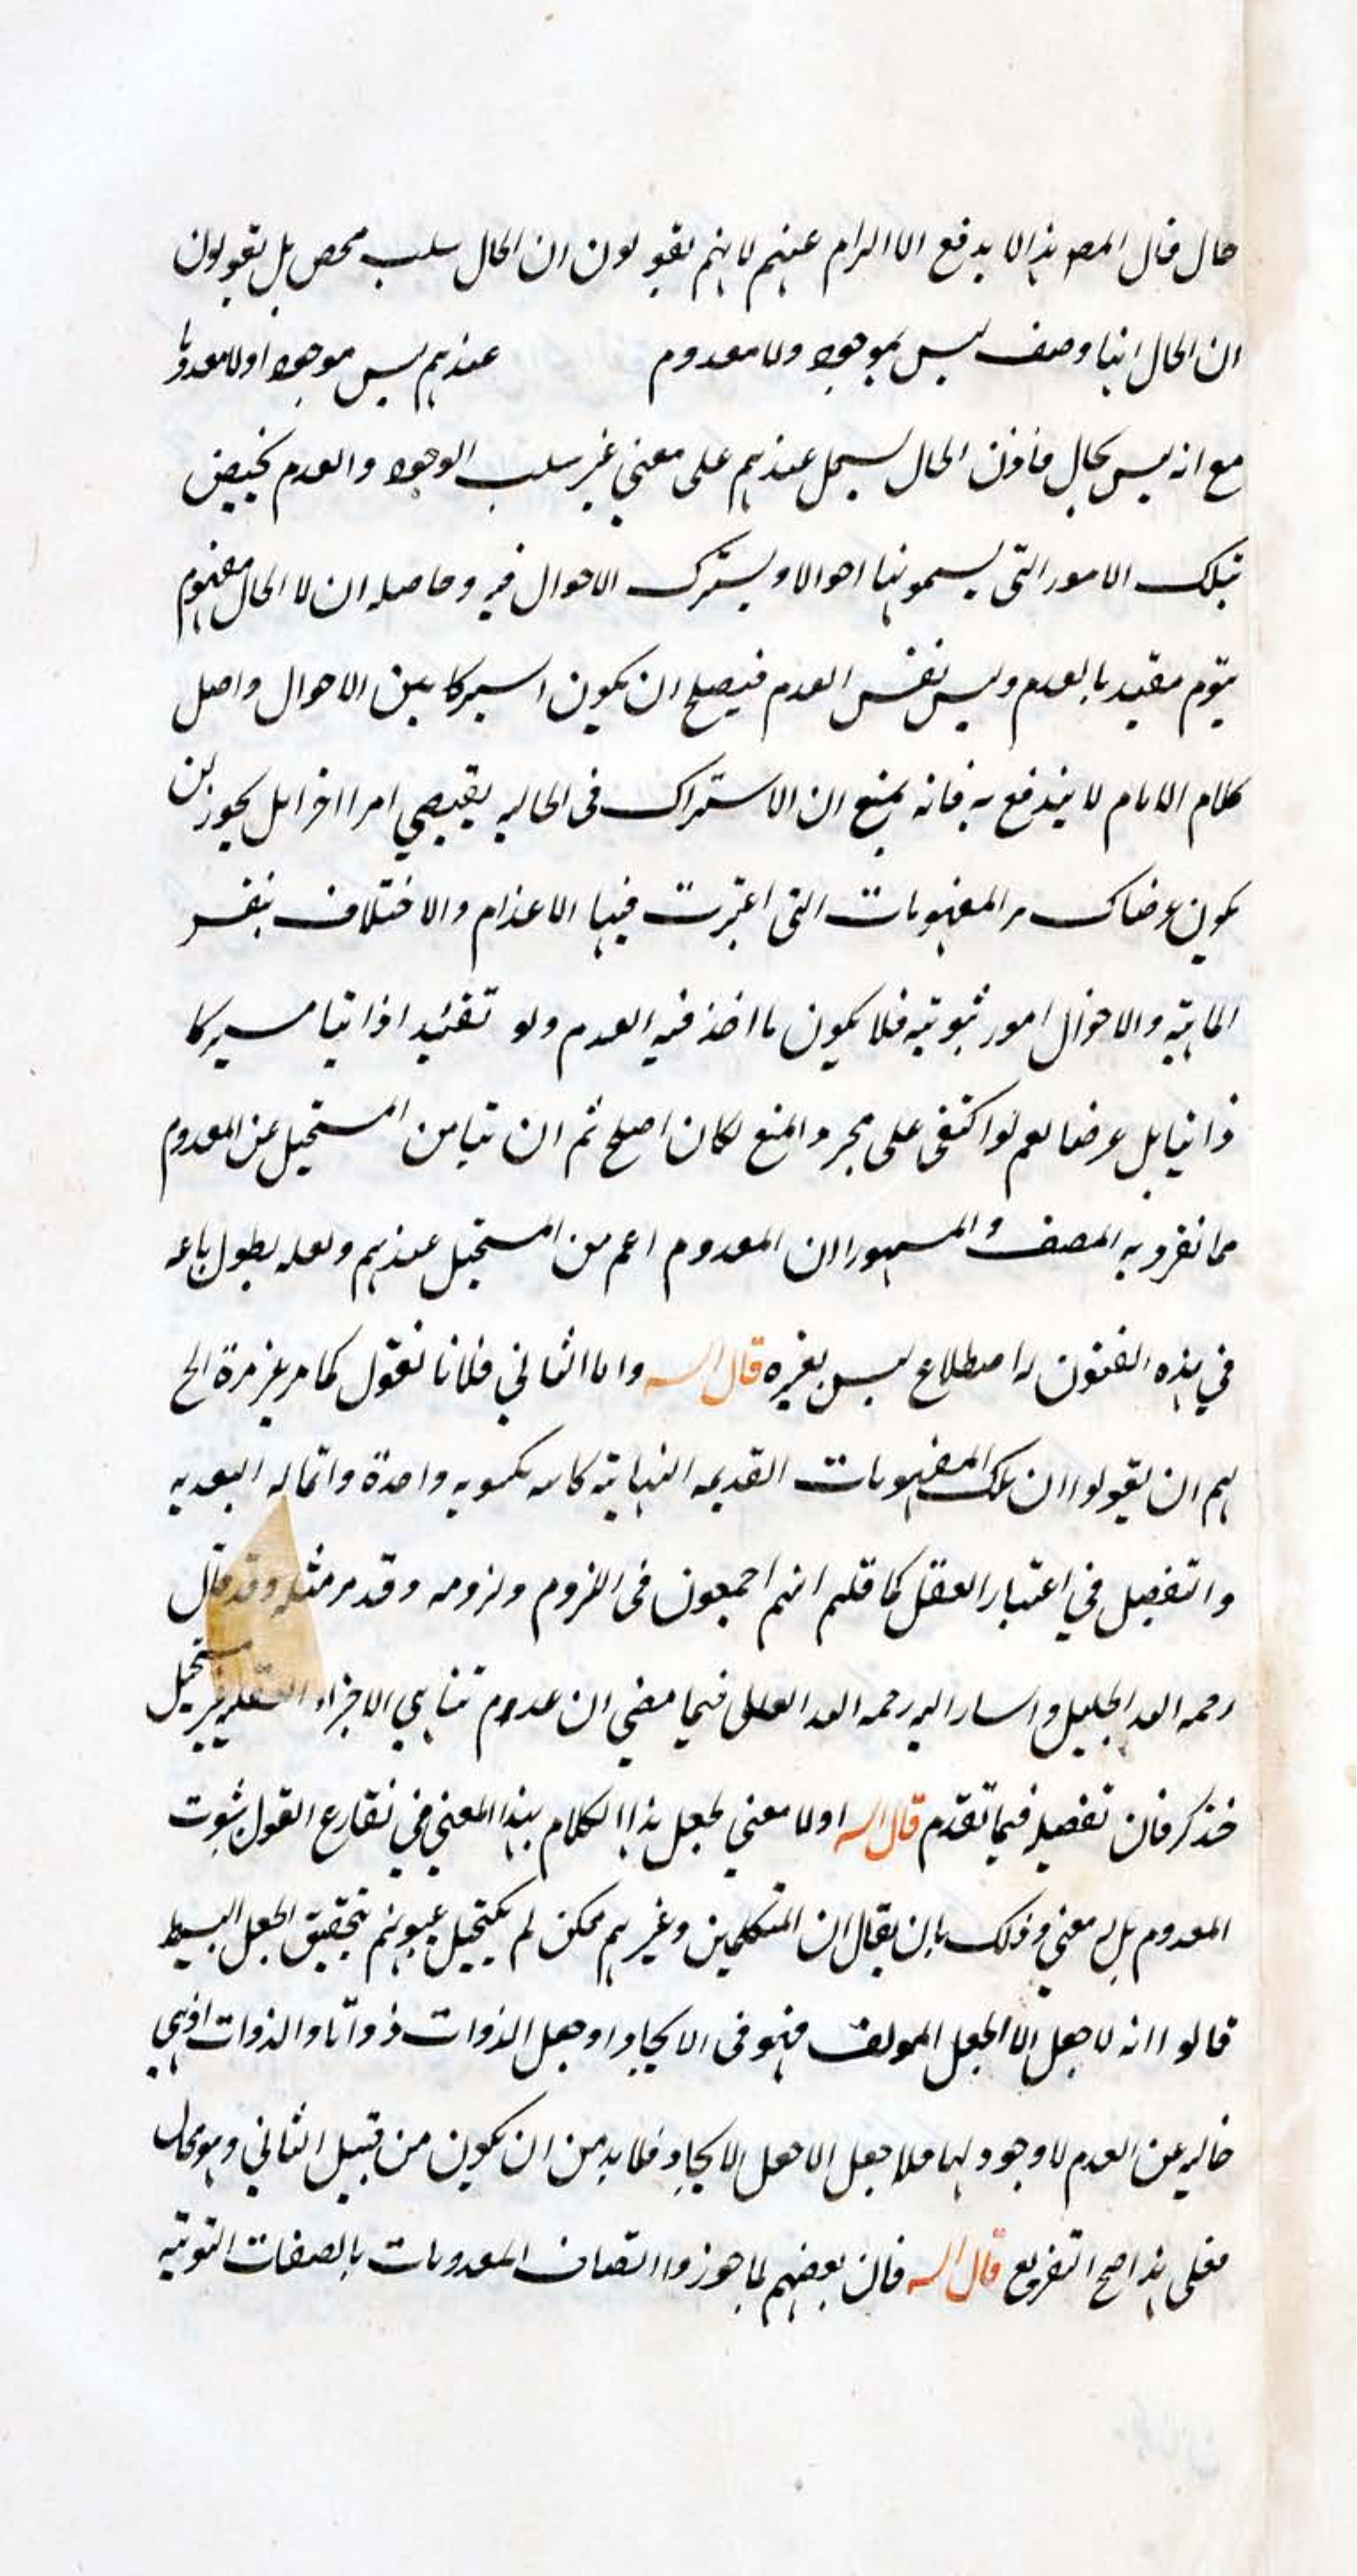 حال قال المصـ هذا لا يدفع الالزام عنهم لانهم يقولون ان الحال سلب محض بل يقولون
ان الحال انها وصف ليس بموجود ولا معدوم عندهم ليس موجودا ولا معدوما
مع انه ليس بحال فاذن الحال يشمل عندهم على معنى غير سلب الوجود والعدم يختص
بتلك الامور التي يسمونها احوالا ويشترك الاحوال فيه وحاصله ان لا الحال مفهوم
مقيد بالعدم وليس نفس العدم فيصلح ان يكون اشتراكا بين الاحوال واصل
كلام الامام لا يندفع به فانه يمنع ان الاشتراك في الحاليه يقتضي امرا اخر بل يجوز ان
يكون عرضا من المفهومات التي اعتبرت فيها الاعدام والاختلاف بنفس
الماهية والاحوال امور ثبوتيه فلا يكون ما اخذ فيه العدم ولو تقييدا ذاتيا مشتركا
ذاتيا بل عرضا نعم لو اكتفى على مجرد المنع لكان اصلح ثم ان تباين المستحيل عن المعدوم
مما تفرد به المصنف والمشهور ان المعدوم اعم من المستحيل عندهم ولعله بطول باعه
في هذه الفنون له اصطلاع ليس بغيره قال الشـ واما الثاني فلانا نقول كما مر غير مرة الخ
لهم ان يقولوا ان تلك المفهومات القديمه واحدة
والتفصيل في اعتبار العقل كما قلتم انهم اجمعون في اللزوم ولزومه وقد مر مثله وقد قال
رحمه الله الجليل واشار اليه رحمه الله العلى فيما مضى ان عدم تناهي الاجزاء مستحيل
فتذكر فان تفصيله فيما تقدم قال الشـ اولا معنى لجعل هذا الكلام بهذا المعنى في تفاريع القول بثبوت
المعدوم بل له معنى وذلك بان يقال ان المتكلمين وغيرهم ممكن لم يكتحل عيونهم بتحقيق الجعل البسيط
قالوا انه لا جعل الا الجعل المولف فهو في الايجاد او جعل الذوات ذواتا والذوات اذ هي
خاليه عن العدم لا وجود لها فلا جعل الا جعل الايجاد فلا بد من ان يكون من قبيل الثاني وهو محال
فعلى هذا صح التفريع قال الشـ فان بعضهم لما جوزوا اتصاف المعدومات بالصفات الثبوتيه